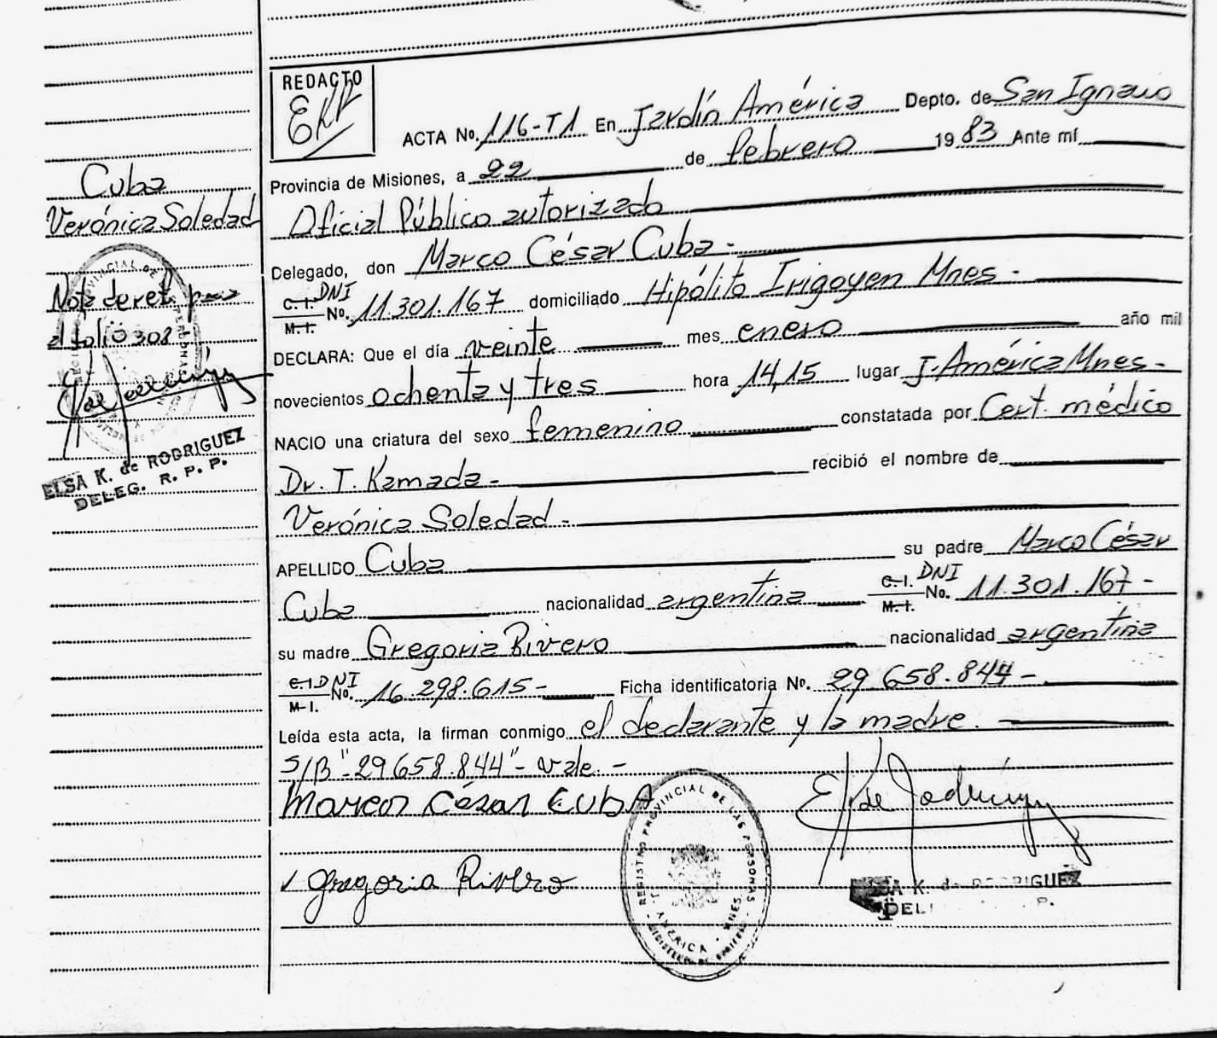 REDACTO
ACTA No. 116-T1 En Jardín América Depto. de San Ignacio
Provincia de Misiones, a 22 de febrero 1983 Ante mí
Oficial Público autorizado
Delegado, don Marco César Cuba -
C.I. DNI
M.I. No. 11.301.167 domiciliado Hipólito Irigoyen Mnes -
DECLARA: Que el día veinte mes enero año mil
novecientos ochenta y tres hora 14,15 lugar J. América Mnes -
NACIO una criatura del sexo femenino constatada por Cert. médico
Dr. T. Kamada - recibió el nombre de
Verónica Soledad -
APELLIDO Cuba su padre Marco César
Cuba nacionalidad argentina C.I. DNI M.I. No. 11.301.167 -
su madre Gregoria Rivero nacionalidad argentina
C.I. DNI M.I. No. 16.298.615 - Ficha identificatoria No. 29.658.844 -
Leída esta acta, la firman conmigo el declarante y la madre.
S/B "29658.844" - vale. -
Marcos César CUBA
Gregoria Rivero
REGISTRO PROVINCIAL DE LAS PERSONAS
AMERICA - MNES.
K. de RODRIGUEZ
DEL
Cuba
Verónica Soledad
Nota de ref. para
el folio 308
ELSA K. de RODRIGUEZ
DELEG. R. P. P.